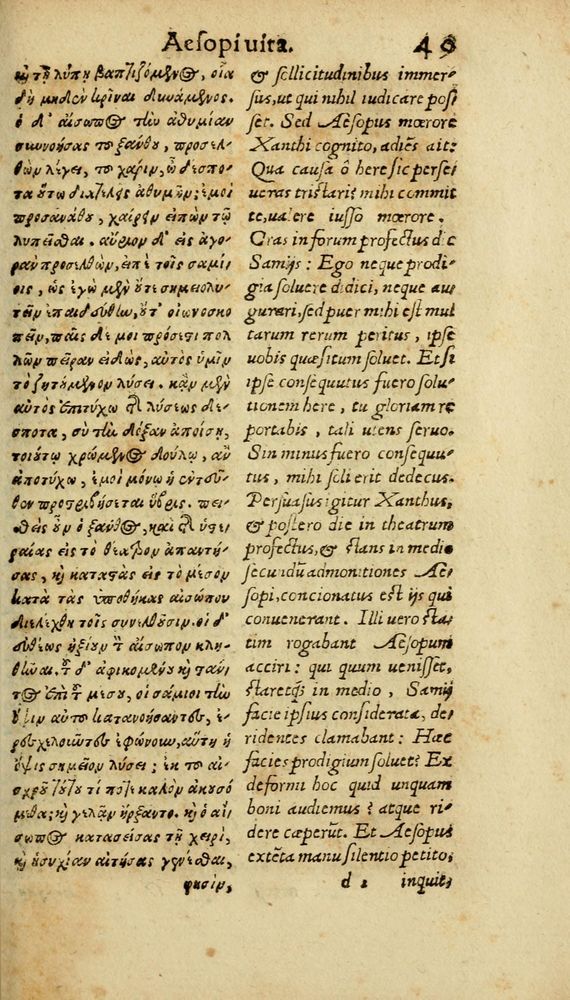 Aesopi vita. 49
κỳ τῇ λύπῃ βαπτιζόμενος, οἷα
δὴ μηδὲν κρῖναι δυνάμενος.
ὁ δ' αἴσωπος τὴν ἀθυμίαν
συννοήσας τοῦ ξάνθου, προσελ-
θὼν λέγει, τοῦ χάριν, ὦ δέσπο-
τα οὕτω διατελεῖς ἀθυμῶν; ἐμοὶ
προσανάθου, χαίρειν εἰπὼν τῷ
λυπεῖσθαι. αὔριον δ' εἰς ἀγο-
ρὰν προσελθὼν, εἰπὲ τοῖς σαμί-
οις, ὡς ἐγὼ μὲν οὔτε σημειολυ-
τεῖν ἐπαιδεύθην, οὔτ' οἰωνοσκο
πεῖν, παῖς δέ μοι πρόσεστι πολ
λῶν πεῖραν εἰδὼς, αὐτὸς ὑμῖν
τὸ ζητούμενον λύσει. κἂν μὲν
αὐτὸς ἐπιτύχω τῆς λύσεως δέ-
σποτα, σὺ τὴν δόξαν ἀποίσῃ,
τοιούτῳ χρώμενος δούλῳ, ἂν
ἀποτύχω, ἐμοὶ μόνῳ ἡ ἐντεῦ-
θεν προστριβήσεται ὕβρις. πει-
θεὶς οὖν ὁ ξάνθος, καὶ τῆς ὑστε-
ραίας εἰς τὸ θέατρον ἀπαντή-
σας, κỳ καταστὰς εἰς τὸ μέσον
κατὰ τὰς ὑποθήκας αἰσώπου
διελέχθη τοῖς συνελθοῦσιν. οἱ δ'
εὐθέως ἠξίουν τὸν αἴσωπον κλη-
θῆναι. τοῦ δ' ἀφικομένου κỳ στάν-
τος ἐπὶ τοῦ μέσου, οἱ σάμιοι τὴν
ὄψιν αὐτοῦ κατανοήσαντες, ἐ-
ρεσχελοῦντες ἐφώνουν, αὕτη ἡ
ὄψις σημεῖον λύσει; ἐκ τοῦ αἰ-
σχροῦ τούτου τί ποτε καλὸν ἀκουσό
μεθα; κỳ γελᾶν ἤρξαντο. κỳ ὁ αἴ-
σωπος κατασείσας τῇ χειρὶ,
κỳ ἡσυχίαν αἰτήσας γενέσθαι,
φησὶν,
& sollicitudinibus immer-
sus, ut qui nihil iudicare pos
set. Sed Aesopus mœrore
Xanthi cognito, adiẽs ait:
Qua causa ô here sic perse
ueras tristari? mihi commit
te, ualere iusso mœrore.
Cras in forum profectus dic
Samijs: Ego neque prodi-
gia soluere didici, neque au
gurari, sed puer mihi est mul
tarum rerum peritus, ipse
uobis quæsitum soluet. Et si
ipse consequutus fuero solu-
tionem here, tu gloriam re
portabis, tali utens seruo.
Sin minus fuero consequu-
tus, mihi soli erit dedecus.
Persuasus igitur Xanthus,
& postero die in theatrum
profectus, & stans in medio
secundũ admonitiones Ae-
sopi, concionatus est ijs qui
conuenerant. Illi uero sta-
tim rogabant Aesopum
acciri: qui quum uenisset,
staretq́; in medio, Samij
facie ipsius considerata, de-
ridentes clamabant: Hæc
facies prodigium soluet? Ex
deformi hoc quid unquam
boni audiemus? atque ri-
dere cæperũt. Et Aesopus
extẽta manu silentio petito,
d 1 inquit,